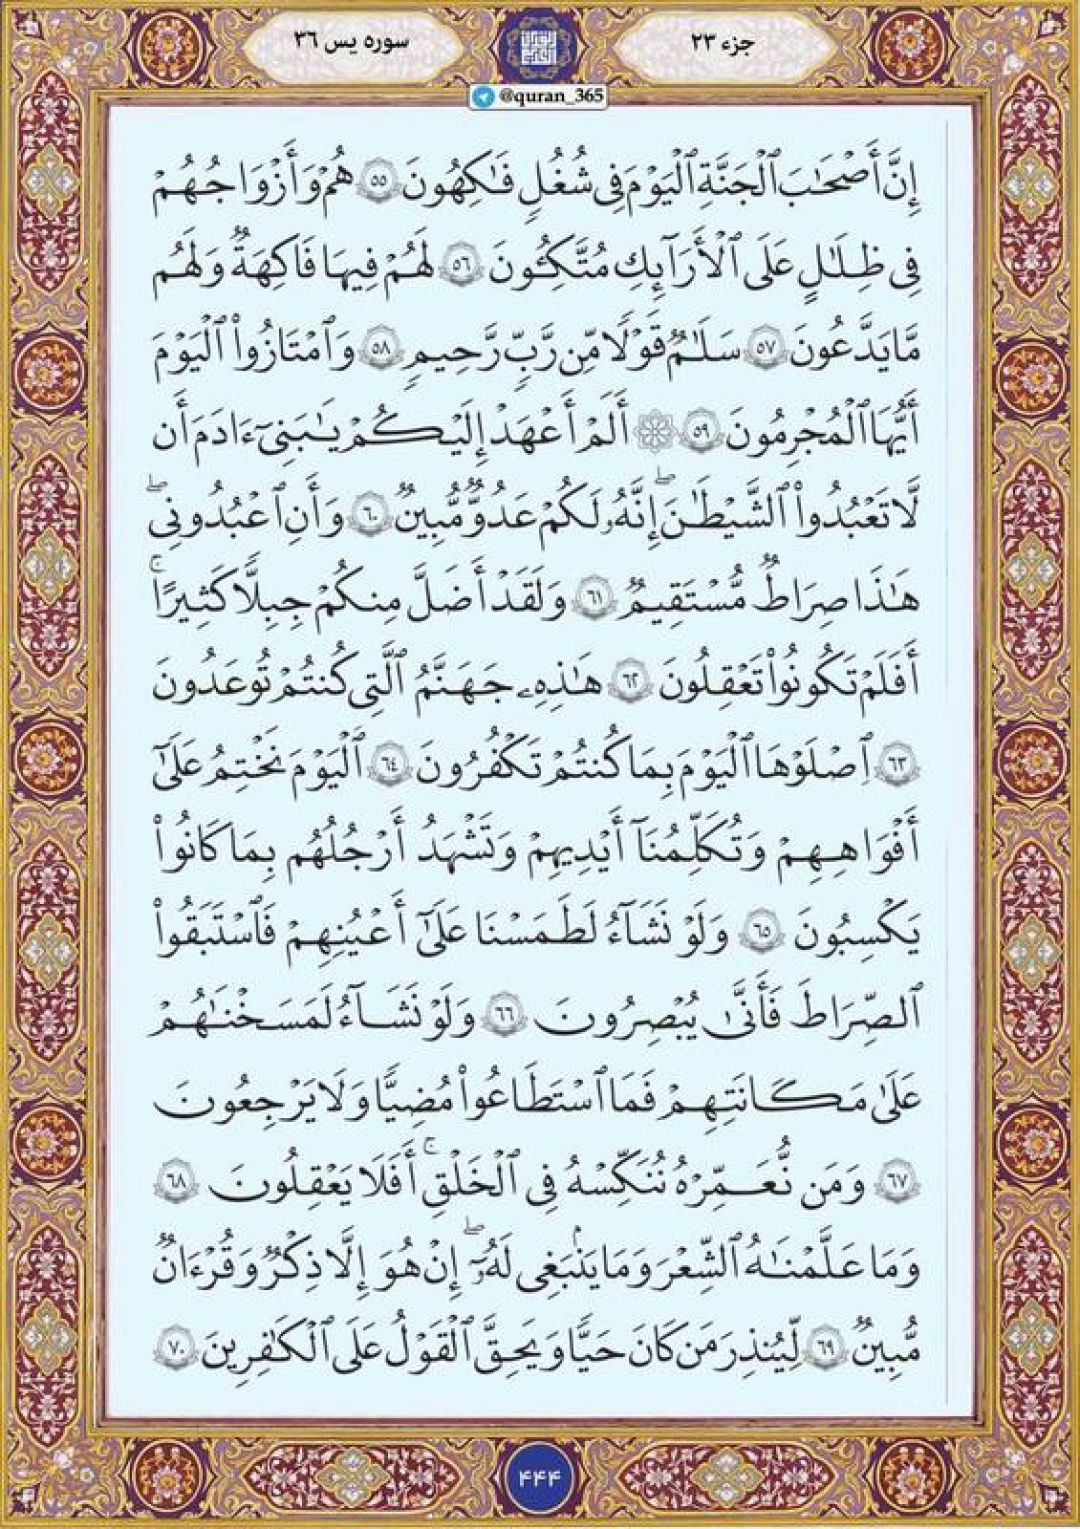 جزء ۲۳
سوره یس ۳۶
@quran_365
إِنَّ أَصْحَٰبَ ٱلْجَنَّةِ ٱلْيَوْمَ فِى شُغُلٍ فَٰكِهُونَ ٥٥ هُمْ وَأَزْوَاجُهُمْ
فِى ظِلَٰلٍ عَلَى ٱلْأَرَآئِكِ مُتَّكِـُٔونَ ٥٦ لَهُمْ فِيهَا فَاكِهَةٌ وَلَهُم
مَّا يَدَّعُونَ ٥٧ سَلَٰمٌ قَوْلًا مِّن رَّبٍّ رَّحِيمٍ ٥٨ وَٱمْتَازُوا۟ ٱلْيَوْمَ
أَيُّهَا ٱلْمُجْرِمُونَ ٥٩ ۞ أَلَمْ أَعْهَدْ إِلَيْكُمْ يَٰبَنِىٓ ءَادَمَ أَن
لَّا تَعْبُدُوا۟ ٱلشَّيْطَٰنَ ۖ إِنَّهُۥ لَكُمْ عَدُوٌّ مُّبِينٌ ٦٠ وَأَنِ ٱعْبُدُونِى ۚ
هَٰذَا صِرَٰطٌ مُّسْتَقِيمٌ ٦١ وَلَقَدْ أَضَلَّ مِنكُمْ جِبِلًّا كَثِيرًا ۖ
أَفَلَمْ تَكُونُوا۟ تَعْقِلُونَ ٦٢ هَٰذِهِۦ جَهَنَّمُ ٱلَّتِى كُنتُمْ تُوعَدُونَ
٦٣ ٱصْلَوْهَا ٱلْيَوْمَ بِمَا كُنتُمْ تَكْفُرُونَ ٦٤ ٱلْيَوْمَ نَخْتِمُ عَلَىٰٓ
أَفْوَاهِهِمْ وَتُكَلِّمُنَآ أَيْدِيهِمْ وَتَشْهَدُ أَرْجُلُهُم بِمَا كَانُوا۟
يَكْسِبُونَ ٦٥ وَلَوْ نَشَآءُ لَطَمَسْنَا عَلَىٰٓ أَعْيُنِهِمْ فَٱسْتَبَقُوا۟
ٱلصِّرَاطَ فَأَنَّىٰ يُبْصِرُونَ ٦٦ وَلَوْ نَشَآءُ لَمَسَخْنَٰهُمْ
عَلَىٰ مَكَانَتِهِمْ فَمَا ٱسْتَطَاعُوا۟ مُضِيًّا وَلَا يَرْجِعُونَ
٦٧ وَمَن نُّعَمِّرْهُ نُنَكِّسْهُ فِى ٱلْخَلْقِ ۚ أَفَلَا يَعْقِلُونَ ٦٨
وَمَا عَلَّمْنَٰهُ ٱلشِّعْرَ وَمَا يَنۢبَغِى لَهُۥٓ ۚ إِنْ هُوَ إِلَّا ذِكْرٌ وَقُرْءَانٌ
مُّبِينٌ ٦٩ لِّيُنذِرَ مَن كَانَ حَيًّا وَيَحِقَّ ٱلْقَوْلُ عَلَى ٱلْكَٰفِرِينَ ٧٠
۴۴۴